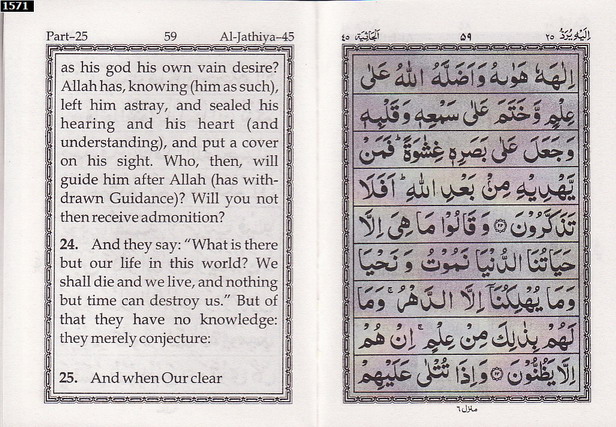 1571
Part–25 59 Al-Jathiya–45
as his god his own vain desire?
Allah has, knowing (him as such),
left him astray, and sealed his
hearing and his heart (and
understanding), and put a cover
on his sight. Who, then, will
guide him after Allah (has with-
drawn Guidance)? Will you not
then receive admonition?
24. And they say: “What is there
but our life in this world? We
shall die and we live, and nothing
but time can destroy us.” But of
that they have no knowledge:
they merely conjecture:
25. And when Our clear
اليه يرد ٢٥ ٥٩ الجاثية ٤٥
اِلٰهَهٗ هَوٰىهُ وَاَضَلَّهُ اللّٰهُ عَلٰى
عِلْمٍ وَّخَتَمَ عَلٰى سَمْعِهٖ وَقَلْبِهٖ
وَجَعَلَ عَلٰى بَصَرِهٖ غِشٰوَةً ؕ فَمَنْ
يَّهْدِيْهِ مِنْۢ بَعْدِ اللّٰهِ ؕ اَفَلَا
تَذَكَّرُوْنَ ۝٢٣ وَقَالُوْا مَا هِىَ اِلَّا
حَيَاتُنَا الدُّنْيَا نَمُوْتُ وَنَحْيَا
وَمَا يُهْلِكُنَاۤ اِلَّا الدَّهْرُ ۚ وَمَا
لَهُمْ بِذٰلِكَ مِنْ عِلْمٍ ۚ اِنْ هُمْ
اِلَّا يَظُنُّوْنَ ۝٢٤ وَاِذَا تُتْلٰى عَلَيْهِمْ
منزل ٦